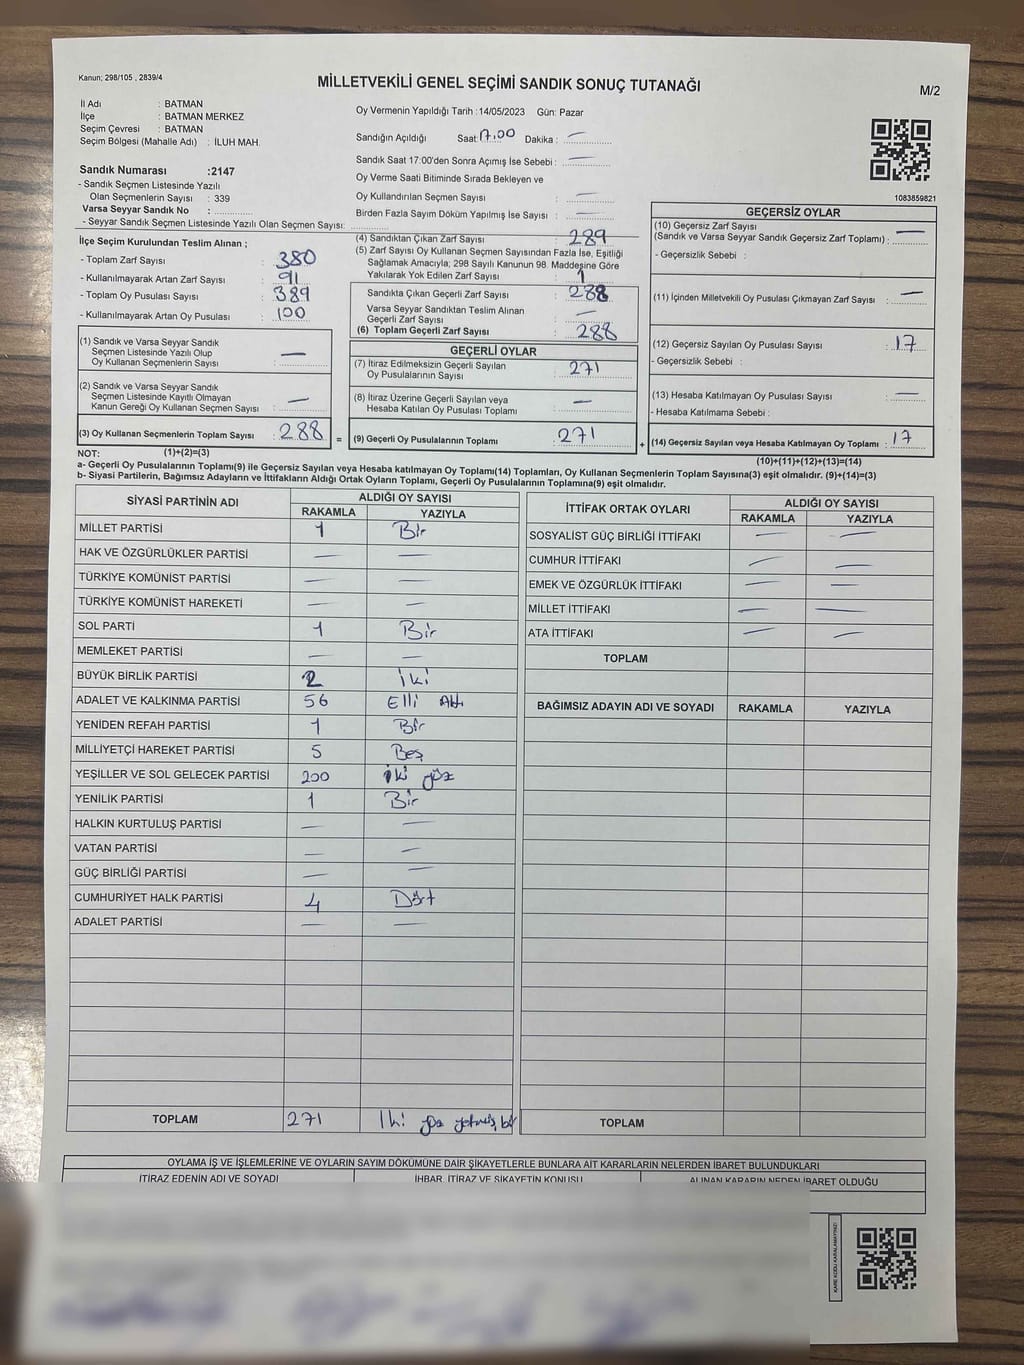 Kanun; 298/105 , 2839/4
MİLLETVEKİLİ GENEL SEÇİMİ SANDIK SONUÇ TUTANAĞI
M/2
İl Adı : BATMAN
İlçe : BATMAN MERKEZ
Seçim Çevresi : BATMAN
Seçim Bölgesi (Mahalle Adı) : İLUH MAH.
Oy Vermenin Yapıldığı Tarih : 14/05/2023 Gün: Pazar
Sandığın Açıldığı Saat : 17.00 Dakika : —
Sandık Saat 17:00'den Sonra Açımış İse Sebebi : —
Oy Verme Saati Bitiminde Sırada Bekleyen ve
Oy Kullandırılan Seçmen Sayısı : —
Birden Fazla Sayım Döküm Yapılmış İse Sayısı : —
1083859821
Sandık Numarası :2147
- Sandık Seçmen Listesinde Yazılı
Olan Seçmenlerin Sayısı : 339
Varsa Seyyar Sandık No :
- Seyyar Sandık Seçmen Listesinde Yazılı Olan Seçmen Sayısı:
İlçe Seçim Kurulundan Teslim Alınan ;
- Toplam Zarf Sayısı : 380
- Kullanılmayarak Artan Zarf Sayısı : 91
- Toplam Oy Pusulası Sayısı : 389
- Kullanılmayarak Artan Oy Pusulası : 100
(1) Sandık ve Varsa Seyyar Sandık
Seçmen Listesinde Yazılı Olup
Oy Kullanan Seçmenlerin Sayısı : —
(2) Sandık ve Varsa Seyyar Sandık
Seçmen Listesinde Kayıtlı Olmayan
Kanun Gereği Oy Kullanan Seçmen Sayısı : —
(3) Oy Kullanan Seçmenlerin Toplam Sayısı : 288
(4) Sandıktan Çıkan Zarf Sayısı : 289
(5) Zarf Sayısı Oy Kullanan Seçmen Sayısından Fazla İse, Eşitliği
Sağlamak Amacıyla; 298 Sayılı Kanunun 98. Maddesine Göre
Yakılarak Yok Edilen Zarf Sayısı : 1
Sandıkta Çıkan Geçerli Zarf Sayısı : 288
Varsa Seyyar Sandıktan Teslim Alınan
Geçerli Zarf Sayısı : —
(6) Toplam Geçerli Zarf Sayısı : 288
GEÇERLİ OYLAR
(7) İtiraz Edilmeksizin Geçerli Sayılan
Oy Pusulalarının Sayısı : 271
(8) İtiraz Üzerine Geçerli Sayılan veya
Hesaba Katılan Oy Pusulası Toplamı : —
= (9) Geçerli Oy Pusulalarının Toplamı : 271
GEÇERSİZ OYLAR
(10) Geçersiz Zarf Sayısı
(Sandık ve Varsa Seyyar Sandık Geçersiz Zarf Toplamı) : —
- Geçersizlik Sebebi :
(11) İçinden Milletvekili Oy Pusulası Çıkmayan Zarf Sayısı : —
(12) Geçersiz Sayılan Oy Pusulası Sayısı : 17
- Geçersizlik Sebebi :
(13) Hesaba Katılmayan Oy Pusulası Sayısı : —
- Hesaba Katılmama Sebebi :
+ (14) Geçersiz Sayılan veya Hesaba Katılmayan Oy Toplamı : 17
NOT: (1)+(2)=(3)
(10)+(11)+(12)+(13)=(14)
a- Geçerli Oy Pusulalarının Toplamı(9) ile Geçersiz Sayılan veya Hesaba katılmayan Oy Toplamı(14) Toplamları, Oy Kullanan Seçmenlerin Toplam Sayısına(3) eşit olmalıdır. (9)+(14)=(3)
b- Siyasi Partilerin, Bağımsız Adayların ve İttifakların Aldığı Ortak Oyların Toplamı, Geçerli Oy Pusulalarının Toplamına(9) eşit olmalıdır.
SİYASİ PARTİNİN ADI
ALDIĞI OY SAYISI
RAKAMLA YAZIYLA
MİLLET PARTİSİ 1 Bir
HAK VE ÖZGÜRLÜKLER PARTİSİ — —
TÜRKİYE KOMÜNİST PARTİSİ — —
TÜRKİYE KOMÜNİST HAREKETİ — —
SOL PARTİ 1 Bir
MEMLEKET PARTİSİ — —
BÜYÜK BİRLİK PARTİSİ 2 iki
ADALET VE KALKINMA PARTİSİ 56 Elli Altı
YENİDEN REFAH PARTİSİ 1 Bir
MİLLİYETÇİ HAREKET PARTİSİ 5 Beş
YEŞİLLER VE SOL GELECEK PARTİSİ 200 iki yüz
YENİLİK PARTİSİ 1 Bir
HALKIN KURTULUŞ PARTİSİ — —
VATAN PARTİSİ — —
GÜÇ BİRLİĞİ PARTİSİ — —
CUMHURİYET HALK PARTİSİ 4 Dört
ADALET PARTİSİ — —
TOPLAM 271 İki yüz yetmiş bir
İTTİFAK ORTAK OYLARI
ALDIĞI OY SAYISI
RAKAMLA YAZIYLA
SOSYALİST GÜÇ BİRLİĞİ İTTİFAKI — —
CUMHUR İTTİFAKI — —
EMEK VE ÖZGÜRLÜK İTTİFAKI — —
MİLLET İTTİFAKI — —
ATA İTTİFAKI — —
TOPLAM
BAĞIMSIZ ADAYIN ADI VE SOYADI RAKAMLA YAZIYLA
TOPLAM
OYLAMA İŞ VE İŞLEMLERİNE VE OYLARIN SAYIM DÖKÜMÜNE DAİR ŞİKAYETLERLE BUNLARA AİT KARARLARIN NELERDEN İBARET BULUNDUKLARI
İTİRAZ EDENİN ADI VE SOYADI
İHBAR, İTİRAZ VE ŞİKAYETİN KONUSU
ALINAN KARARIN NEDEN İBARET OLDUĞU
KARE KODU KARALAMAYINIZ!